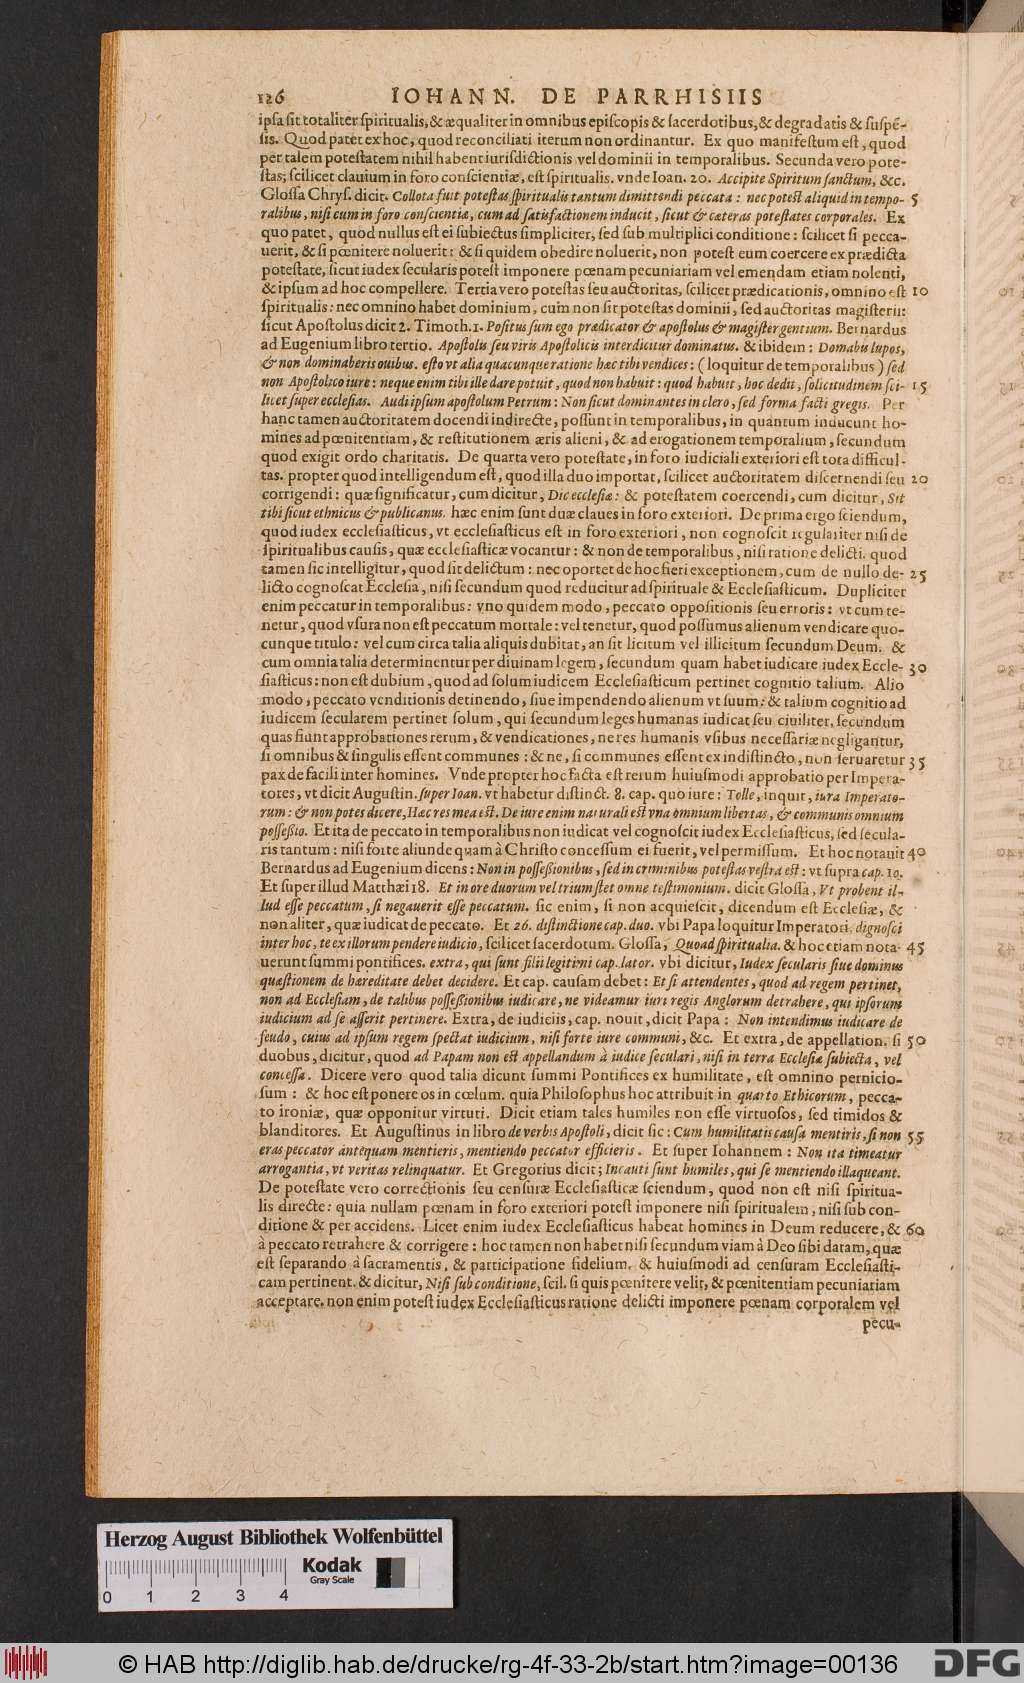 126 IOHANN. DE PARRHISIIS
ipsa sit totaliter spiritualis,& æqualiter in omnibus episcopis & sacerdotibus,& degradatis & suspē-
sis. Quod patet ex hoc, quod reconciliati iterum non ordinantur. Ex quo manifestum est, quod
per talem potestatem nihil habent iurisdictionis vel dominii in temporalibus. Secunda vero pote-
stas; scilicet clauium in foro conscientiæ, est spiritualis. vnde Ioan. 20. Accipite Spiritum sanctum, &c.
Glossa Chrys. dicit. Collota fuit potestas spiritualis tantum dimittendi peccata : nec potest aliquid in tempo- 5
ralibus, nisi cum in foro conscientiæ, cum ad satisfactionem inducit, sicut & cæteras potestates corporales. Ex
quo patet, quod nullus est ei subiectus simpliciter, sed sub multiplici conditione : scilicet si pecca-
uerit, & si pœnitere noluerit: & si quidem obedire noluerit, non potest eum coercere ex prædicta
potestate, sicut iudex secularis potest imponere pœnam pecuniariam vel emendam etiam nolenti,
& ipsum ad hoc compellere. Tertia vero potestas seu auctoritas, scilicet prædicationis, omnino est 10
spiritualis : nec omnino habet dominium, cum non sit potestas dominii, sed auctoritas magisterii:
sicut Apostolus dicit 2. Timoth. 1. Positus sum ego prædicator & apostolus & magister gentium. Bernardus
ad Eugenium libro tertio. Apostolis seu viris Apostolicis interdicitur dominatus. & ibidem : Domabis lupos,
& non dominaberis ouibus. esto vt alia quacunque ratione hæc tibi vendices : ( loquitur de temporalibus ) sed
non Apostolico iure : neque enim tibi ille dare potuit, quod non habuit : quod habuit, hoc dedit, solicitudinem sci- 15
licet super ecclesias. Audi ipsum apostolum Petrum : Non sicut dominantes in clero, sed forma facti gregis. Per
hanc tamen auctoritatem docendi indirecte, possunt in temporalibus, in quantum inducunt ho-
mines ad pœnitentiam, & restitutionem æris alieni, & ad erogationem temporalium, secundum
quod exigit ordo charitatis. De quarta vero potestate, in foro iudiciali exteriori est tota difficul-
tas. propter quod intelligendum est, quod illa duo importat, scilicet auctoritatem discernendi seu 20
corrigendi : quæ significatur, cum dicitur, Dic ecclesiæ : & potestatem coercendi, cum dicitur, Sit
tibi sicut ethnicus & publicanus. hæc enim sunt duæ claues in foro exteriori. De prima ergo sciendum,
quod iudex ecclesiasticus, vt ecclesiasticus est in foro exteriori, non cognoscit regulariter nisi de
spiritualibus causis, quæ ecclesiasticæ vocantur : & non de temporalibus, nisi ratione delicti. quod
tamen sic intelligitur, quod sit delictum : nec oportet de hoc fieri exceptionem, cum de nullo de- 25
licto cognoscat Ecclesia, nisi secundum quod reducitur ad spirituale & Ecclesiasticum. Dupliciter
enim peccatur in temporalibus: vno quidem modo, peccato oppositionis seu erroris : vt cum te-
netur, quod vsura non est peccatum mortale : vel tenetur, quod possumus alienum vendicare quo-
cunque titulo : vel cum circa talia aliquis dubitat, an sit licitum vel illicitum secundum Deum. &
cum omnia talia determinentur per diuinam legem, secundum quam habet iudicare iudex Eccle- 30
siasticus : non est dubium, quod ad solum iudicem Ecclesiasticum pertinet cognitio talium. Alio
modo, peccato venditionis detinendo, siue impendendo alienum vt suum : & talium cognitio ad
iudicem secularem pertinet solum, qui secundum leges humanas iudicat seu ciuiliter, secundum
quas fiunt approbationes rerum, & vendicationes, ne res humanis vsibus necessariæ negligantur,
si omnibus & singulis essent communes : & ne, si communes essent ex indistincto, non seruaretur 35
pax de facili inter homines. Vnde propter hoc facta est rerum huiusmodi approbatio per Impera-
tores, vt dicit Augustin. super Ioan. vt habetur distinct. 8. cap. quo iure : Tolle, inquit, iura Imperato-
rum : & non potes dicere, Hæc res mea est. De iure enim naturali est vna omnium libertas, & communis omnium
possessio. Et ita de peccato in temporalibus non iudicat vel cognoscit iudex Ecclesiasticus, sed secula-
ris tantum : nisi forte aliunde quam à Christo concessum ei fuerit, vel permissum. Et hoc notauit 40
Bernardus ad Eugenium dicens : Non in possessionibus, sed in criminibus potestas vestra est : vt supra cap. 10.
Et super illud Matthæi 18. Et in ore duorum vel trium stet omne testimonium. dicit Glossa, Vt probent il-
lud esse peccatum, si negauerit esse peccatum. sic enim, si non acquiescit, dicendum est Ecclesiæ, &
non aliter, quæ iudicat de peccato. Et 26. distinctione cap. duo. vbi Papa loquitur Imperatori, dignosci
inter hoc, te ex illorum pendere iudicio, scilicet sacerdotum. Glossa, Quoad spiritualia. & hoc etiam nota- 45
uerunt summi pontifices. extra, qui sunt filii legitimi cap. lator. vbi dicitur, Iudex secularis siue dominus
quæstionem de hæreditate debet decidere. Et cap. causam debet : Et si attendentes, quod ad regem pertinet,
non ad Ecclesiam, de talibus possessionibus iudicare, ne videamur iuri regis Anglorum detrahere, qui ipsorum
iudicium ad se asserit pertinere. Extra, de iudiciis, cap. nouit, dicit Papa : Non intendimus iudicare de
feudo, cuius ad ipsum regem spectat iudicium, nisi forte iure communi, &c. Et extra, de appellation. si 50
duobus, dicitur, quod ad Papam non est appellandum à iudice seculari, nisi in terra Ecclesiæ subiecta, vel
concessa. Dicere vero quod talia dicunt summi Pontifices ex humilitate, est omnino pernicio-
sum : & hoc est ponere os in cœlum. quia Philosophus hoc attribuit in quarto Ethicorum, pecca-
to ironiæ, quæ opponitur virtuti. Dicit etiam tales humiles non esse virtuosos, sed timidos &
blanditores. Et Augustinus in libro de verbis Apostoli, dicit sic : Cum humilitatis causa mentiris, si non 55
eras peccator antequam mentieris, mentiendo peccator efficieris. Et super Iohannem : Non ita timeatur
arrogantia, vt veritas relinquatur. Et Gregorius dicit; Incauti sunt humiles, qui se mentiendo illaqueant.
De potestate vero correctionis seu censuræ Ecclesiasticæ sciendum, quod non est nisi spiritua-
lis directe : quia nullam pœnam in foro exteriori potest imponere nisi spiritualem, nisi sub con-
ditione & per accidens. Licet enim iudex Ecclesiasticus habeat homines in Deum reducere, & 60
à peccato retrahere & corrigere : hoc tamen non habet nisi secundum viam à Deo sibi datam, quæ
est separando à sacramentis, & participatione fidelium, & huiusmodi ad censuram Ecclesiasti-
cam pertinent. & dicitur, Nisi sub conditione, scil. si quis pœnitere velit, & pœnitentiam pecuniariam
acceptare. non enim potest iudex Ecclesiasticus ratione delicti imponere pœnam corporalem vel
pecu-
Herzog August Bibliothek Wolfenbüttel
Kodak
Gray Scale
0 1 2 3 4
© HAB http://diglib.hab.de/drucke/rg-4f-33-2b/start.htm?image=00136
DFG